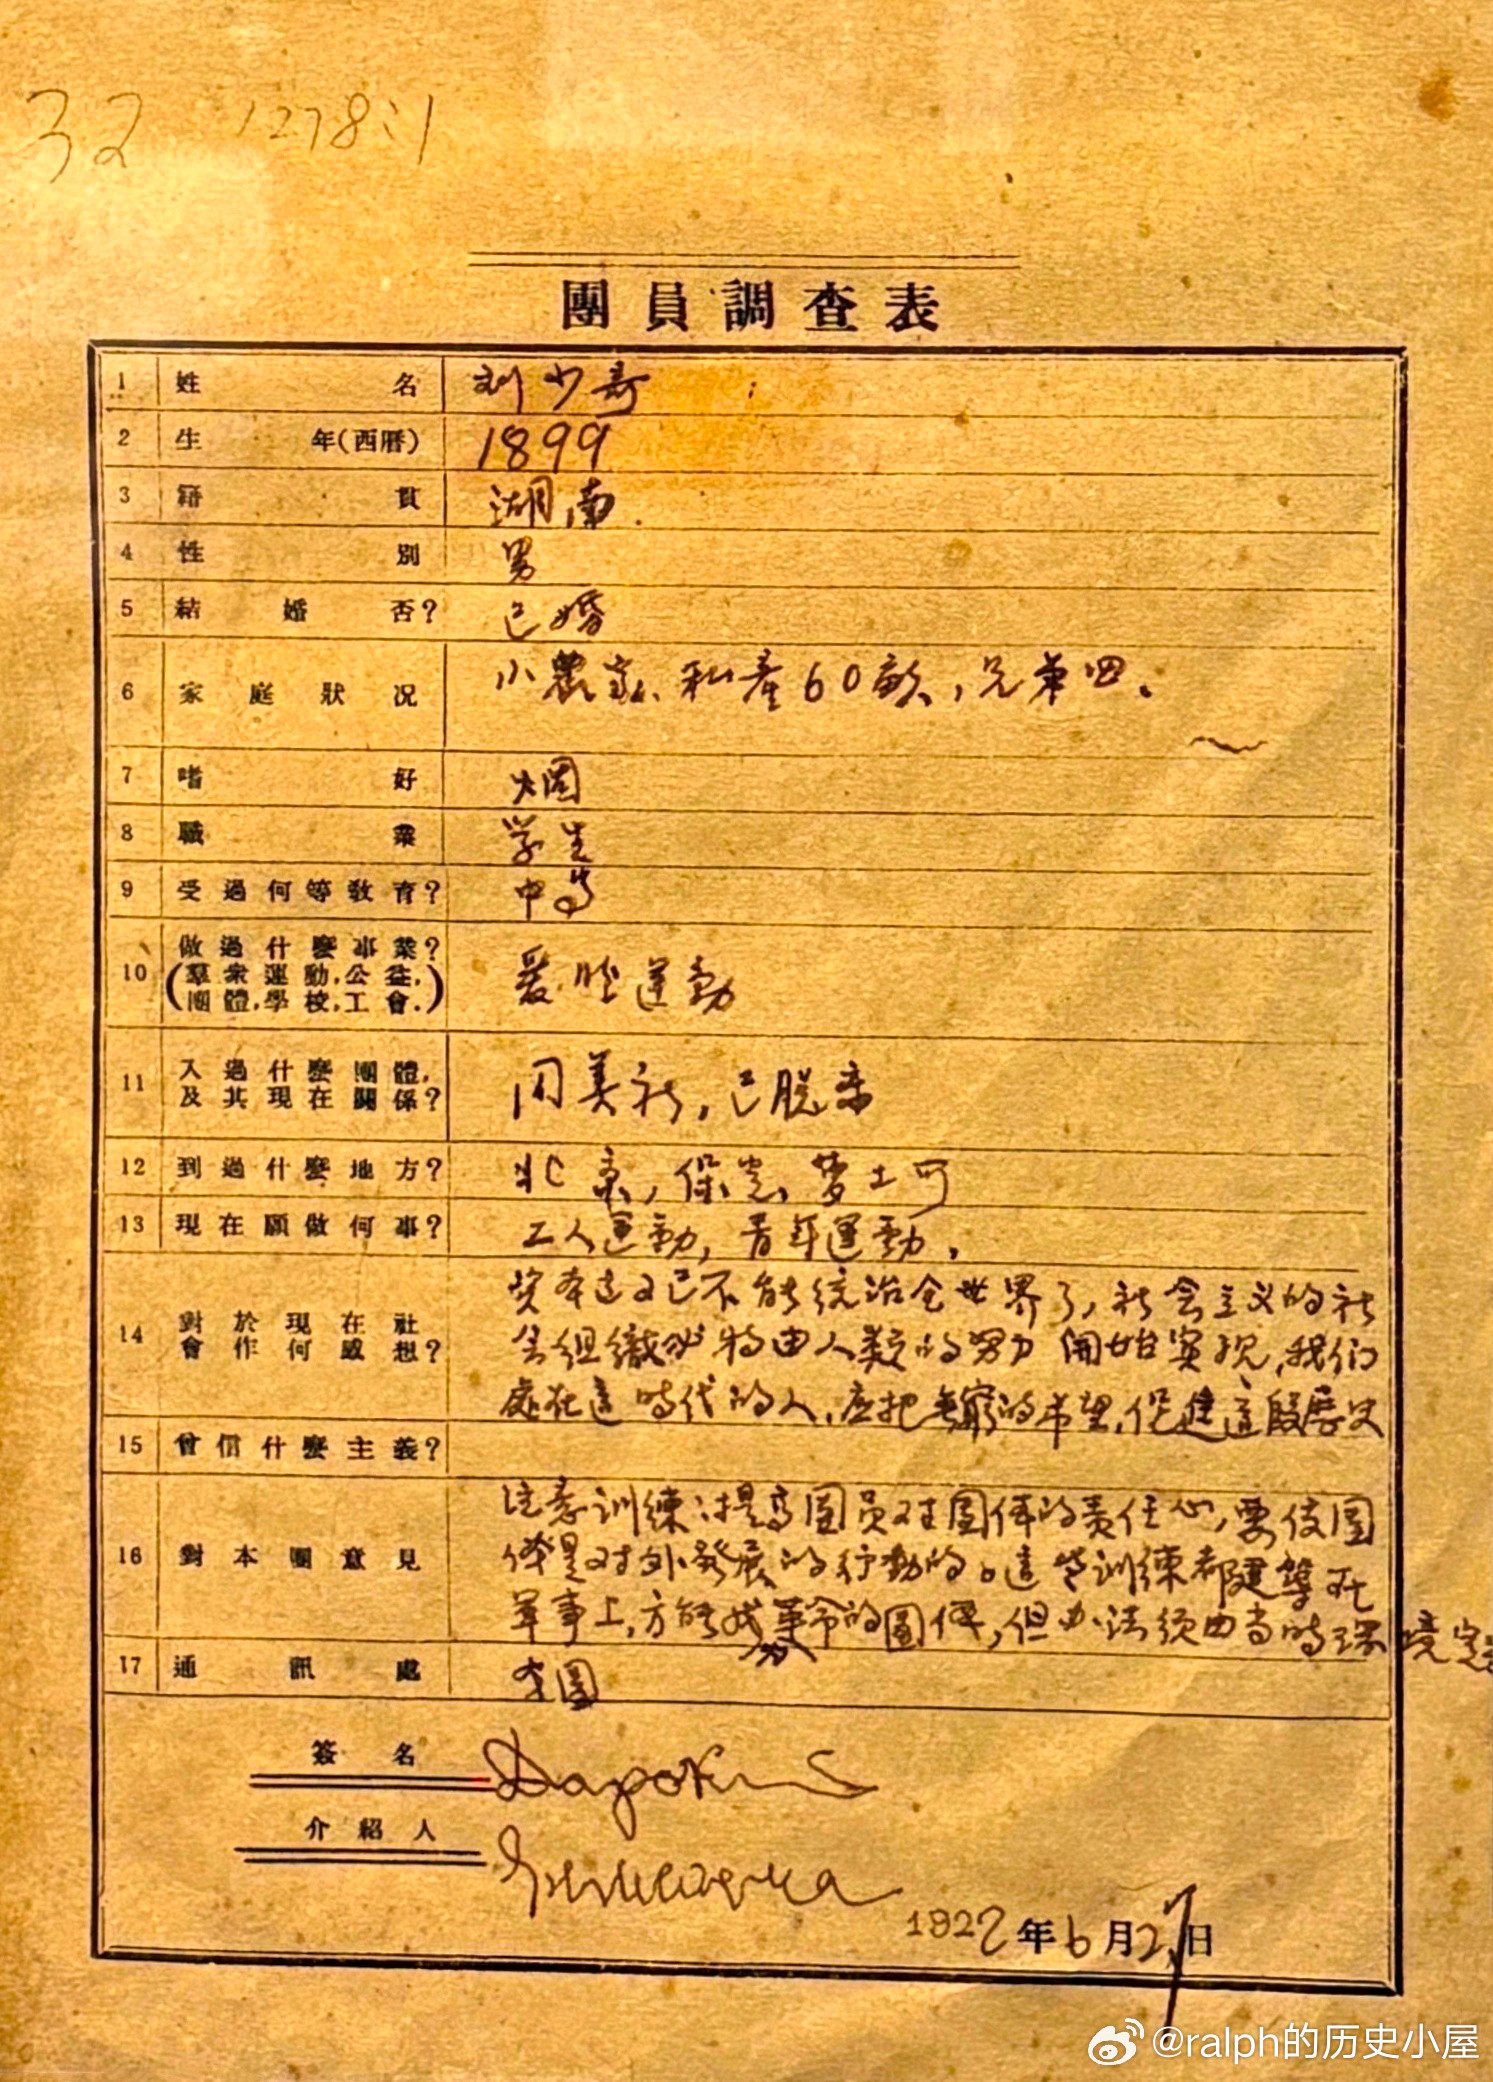 32 1278:1
團員調查表
1 姓名 刘少奇
2 生年(西曆) 1899
3 籍貫 湖南.
4 性別 男
5 結婚否? 已婚
6 家庭狀况 小農家、私產60畝,兄弟四。
7 嗜好 烟
8 職業 学生
9 受過何等教育? 中等
10 做過什麽事業? (羣衆運動,公益,
團體,學校,工會.) 愛国運動
11 入過什麽團體,
及其現在關係? 美社,已脫离
12 到過什麽地方? 北京,保定、莫士可
13 現在願做何事? 工人運動,青年運動。
14 對於現在社
會作何感想? 資本主义已不能統治全世界了,社会主义的社
会組織必将由人類的努力開始实现,我们
處在這時代的人,应把無窮的希望,促進這段历史
15 曾信什麽主義?
16 對本團意見 注意訓練;提高团员对团体的責任心,要使团
体是对外發展的行動的。這些訓練都建築在
軍事上,方能成為革命的团体,但办法须由当时环境定
17 通訊處 本团
簽名
介紹人
1922年6月27日
@ralph的历史小屋